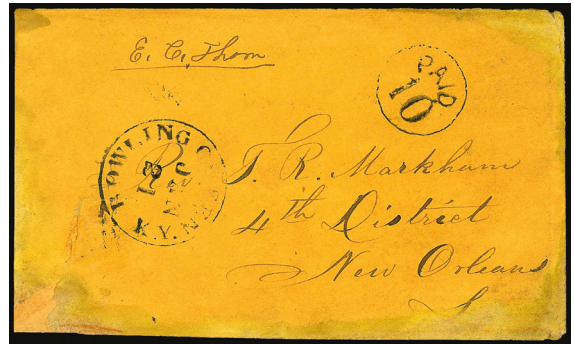 E. C. Thom
PAID
10
BOWLING GREEN
JAN
KY.
T. R. Markham
4th District
New Orleans